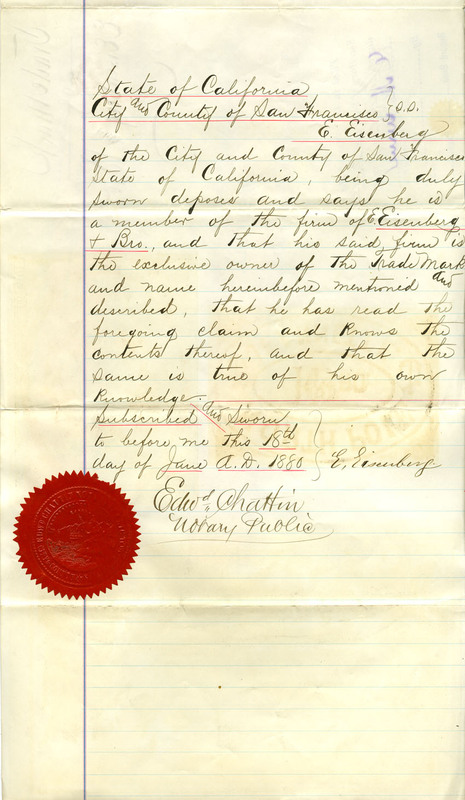 State of California
City and County of San Francisco } S.S.
E. Eisenberg
of the City and County of San Francisco
State of California, being duly
sworn deposes and says he is
a member of the firm of E. Eisenberg
& Bro., and that his said firm is
the exclusive owner of the Trade Mark
and name hereinbefore mentioned and
described, that he has read the
foregoing claim and knows the
contents thereof, and that the
same is true of his own
knowledge.
Subscribed and Sworn
to before me this 18th
day of June A.D. 1880 } E. Eisenberg
Edwd Chattin
Notary Public